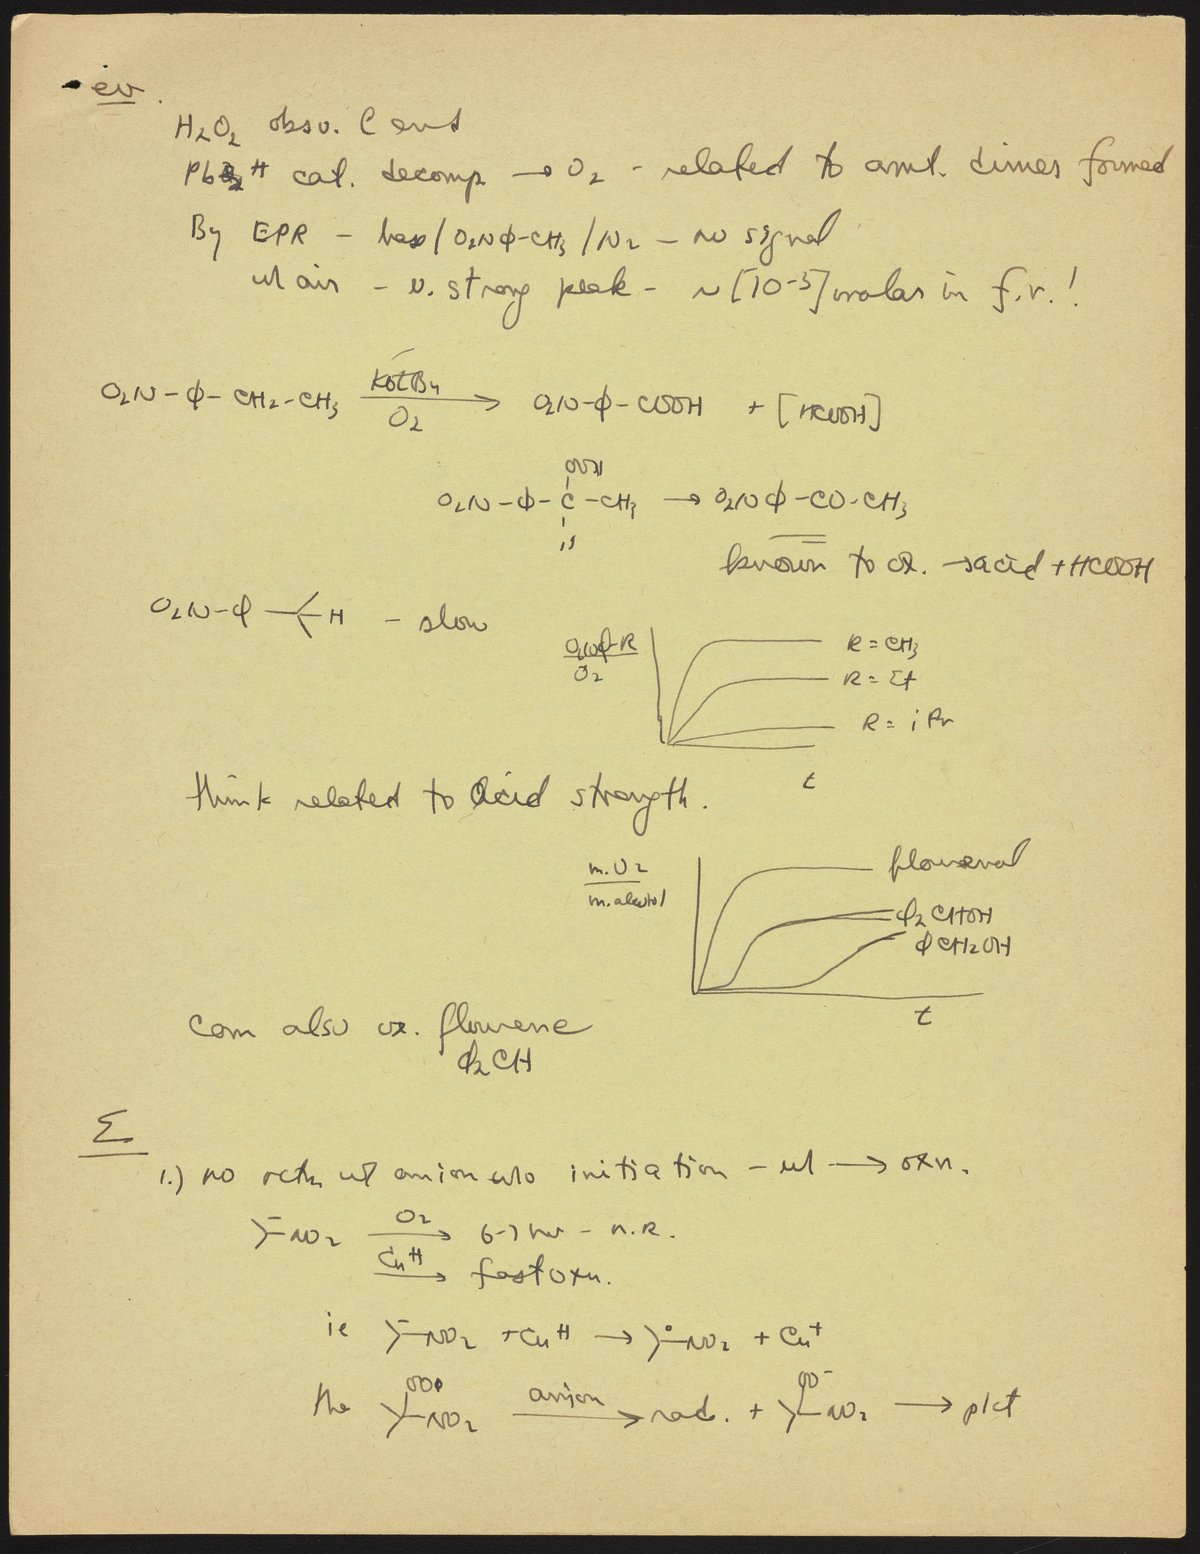 ev.
H₂O₂ obsv. @ end
Pb++ cat. decomp → O₂ - related to amt. dimer formed
By EPR - base / O₂NΦ-CH₃ / N₂ - no signal
w/ air - v. strong peak - ~ [10⁻³] molar in f.r.!
O₂N-Φ-CH₂-CH₃ KOtBu → O₂ O₂N-Φ-COOH + [HCOOH]
OOH
O₂N-Φ-C-CH₃ → O₂NΦ-CO-CH₃
H
known to ox. → acid + HCOOH
O₂N-Φ H - slow
O₂NΦ-R / O₂ R = CH₃
R = Et
R = iPr
t
think related to acid strength.
m.O₂ / m.alcohol flourenol
Φ₂CHOH
ΦCH₂OH
t
can also ox. flourene
Φ₂CH
Σ
1.) no rctn w/ anion w/o initiation - w/ → oxn.
-NO₂ O₂ → 6-7 hr - n.R.
Cu++ → fast oxn.
ie -NO₂ + Cu++ → •-NO₂ + Cu+
the OO• -NO₂ anion → rad. + OO⁻ -NO₂ → pdct